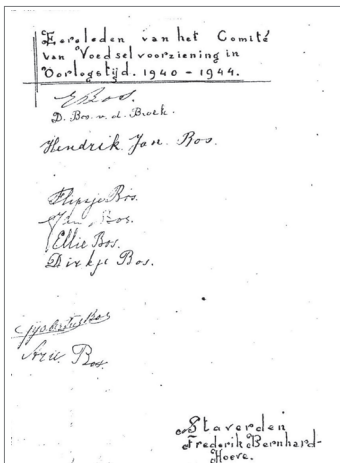 Eereleden van het Comité
van Voedselvoorziening in
Oorlogstijd. 1940 - 1944.
E Bos.
D. Bos. v. d. Broek.
Hendrik Jan Bos.
Flipsje Bos.
Bos.
Ellie Bos.
Dirkje Bos.
Gijsbertus Bos
Arie Bos.
Staverden
Frederik Bernhard-
Hoeve.